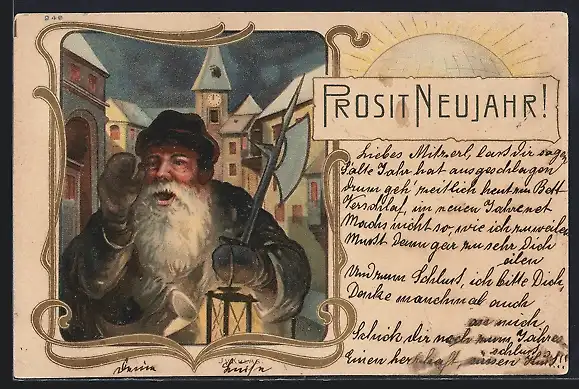 246
PROSIT NEUJAHR!
Liebes Mitzerl, lass dir sagen
S'alte Jahr hat ausgeschlagen
drum geh' zeitlich heut zu Bett
Verschlaf im neuen Jahre net
Machs nicht so, wie ich zuweilen
Musst Denn gar zu sehr Dich
eilen
Und zum Schluss, ich bitte Dich,
Denke manchmal auch
an mich
Schick dir noch zum Jahres
schluss
Einen herzhaft, süssen Kuss!!
Deine Luise